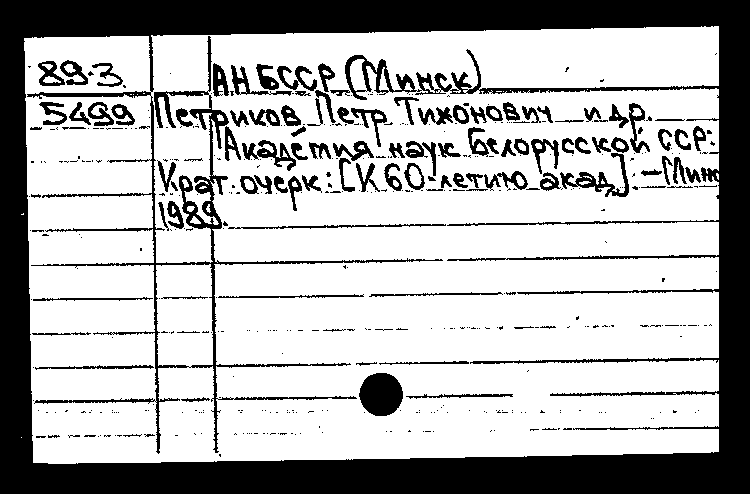 89-3 АН БССР (Минск)
5499 Петриков Петр Тихонович и др.
Академия наук Белорусской ССР:
Крат. очерк: [К 60-летию акад.]. - Минс
1989.